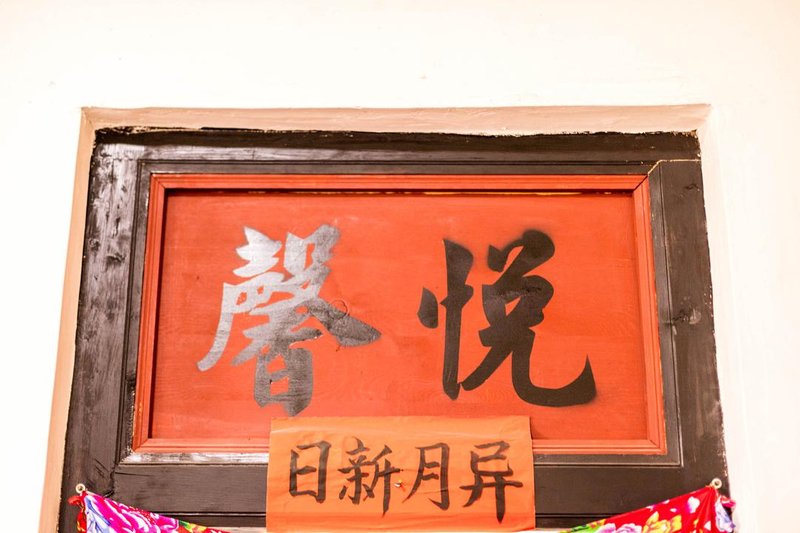 馨悦
日新月异